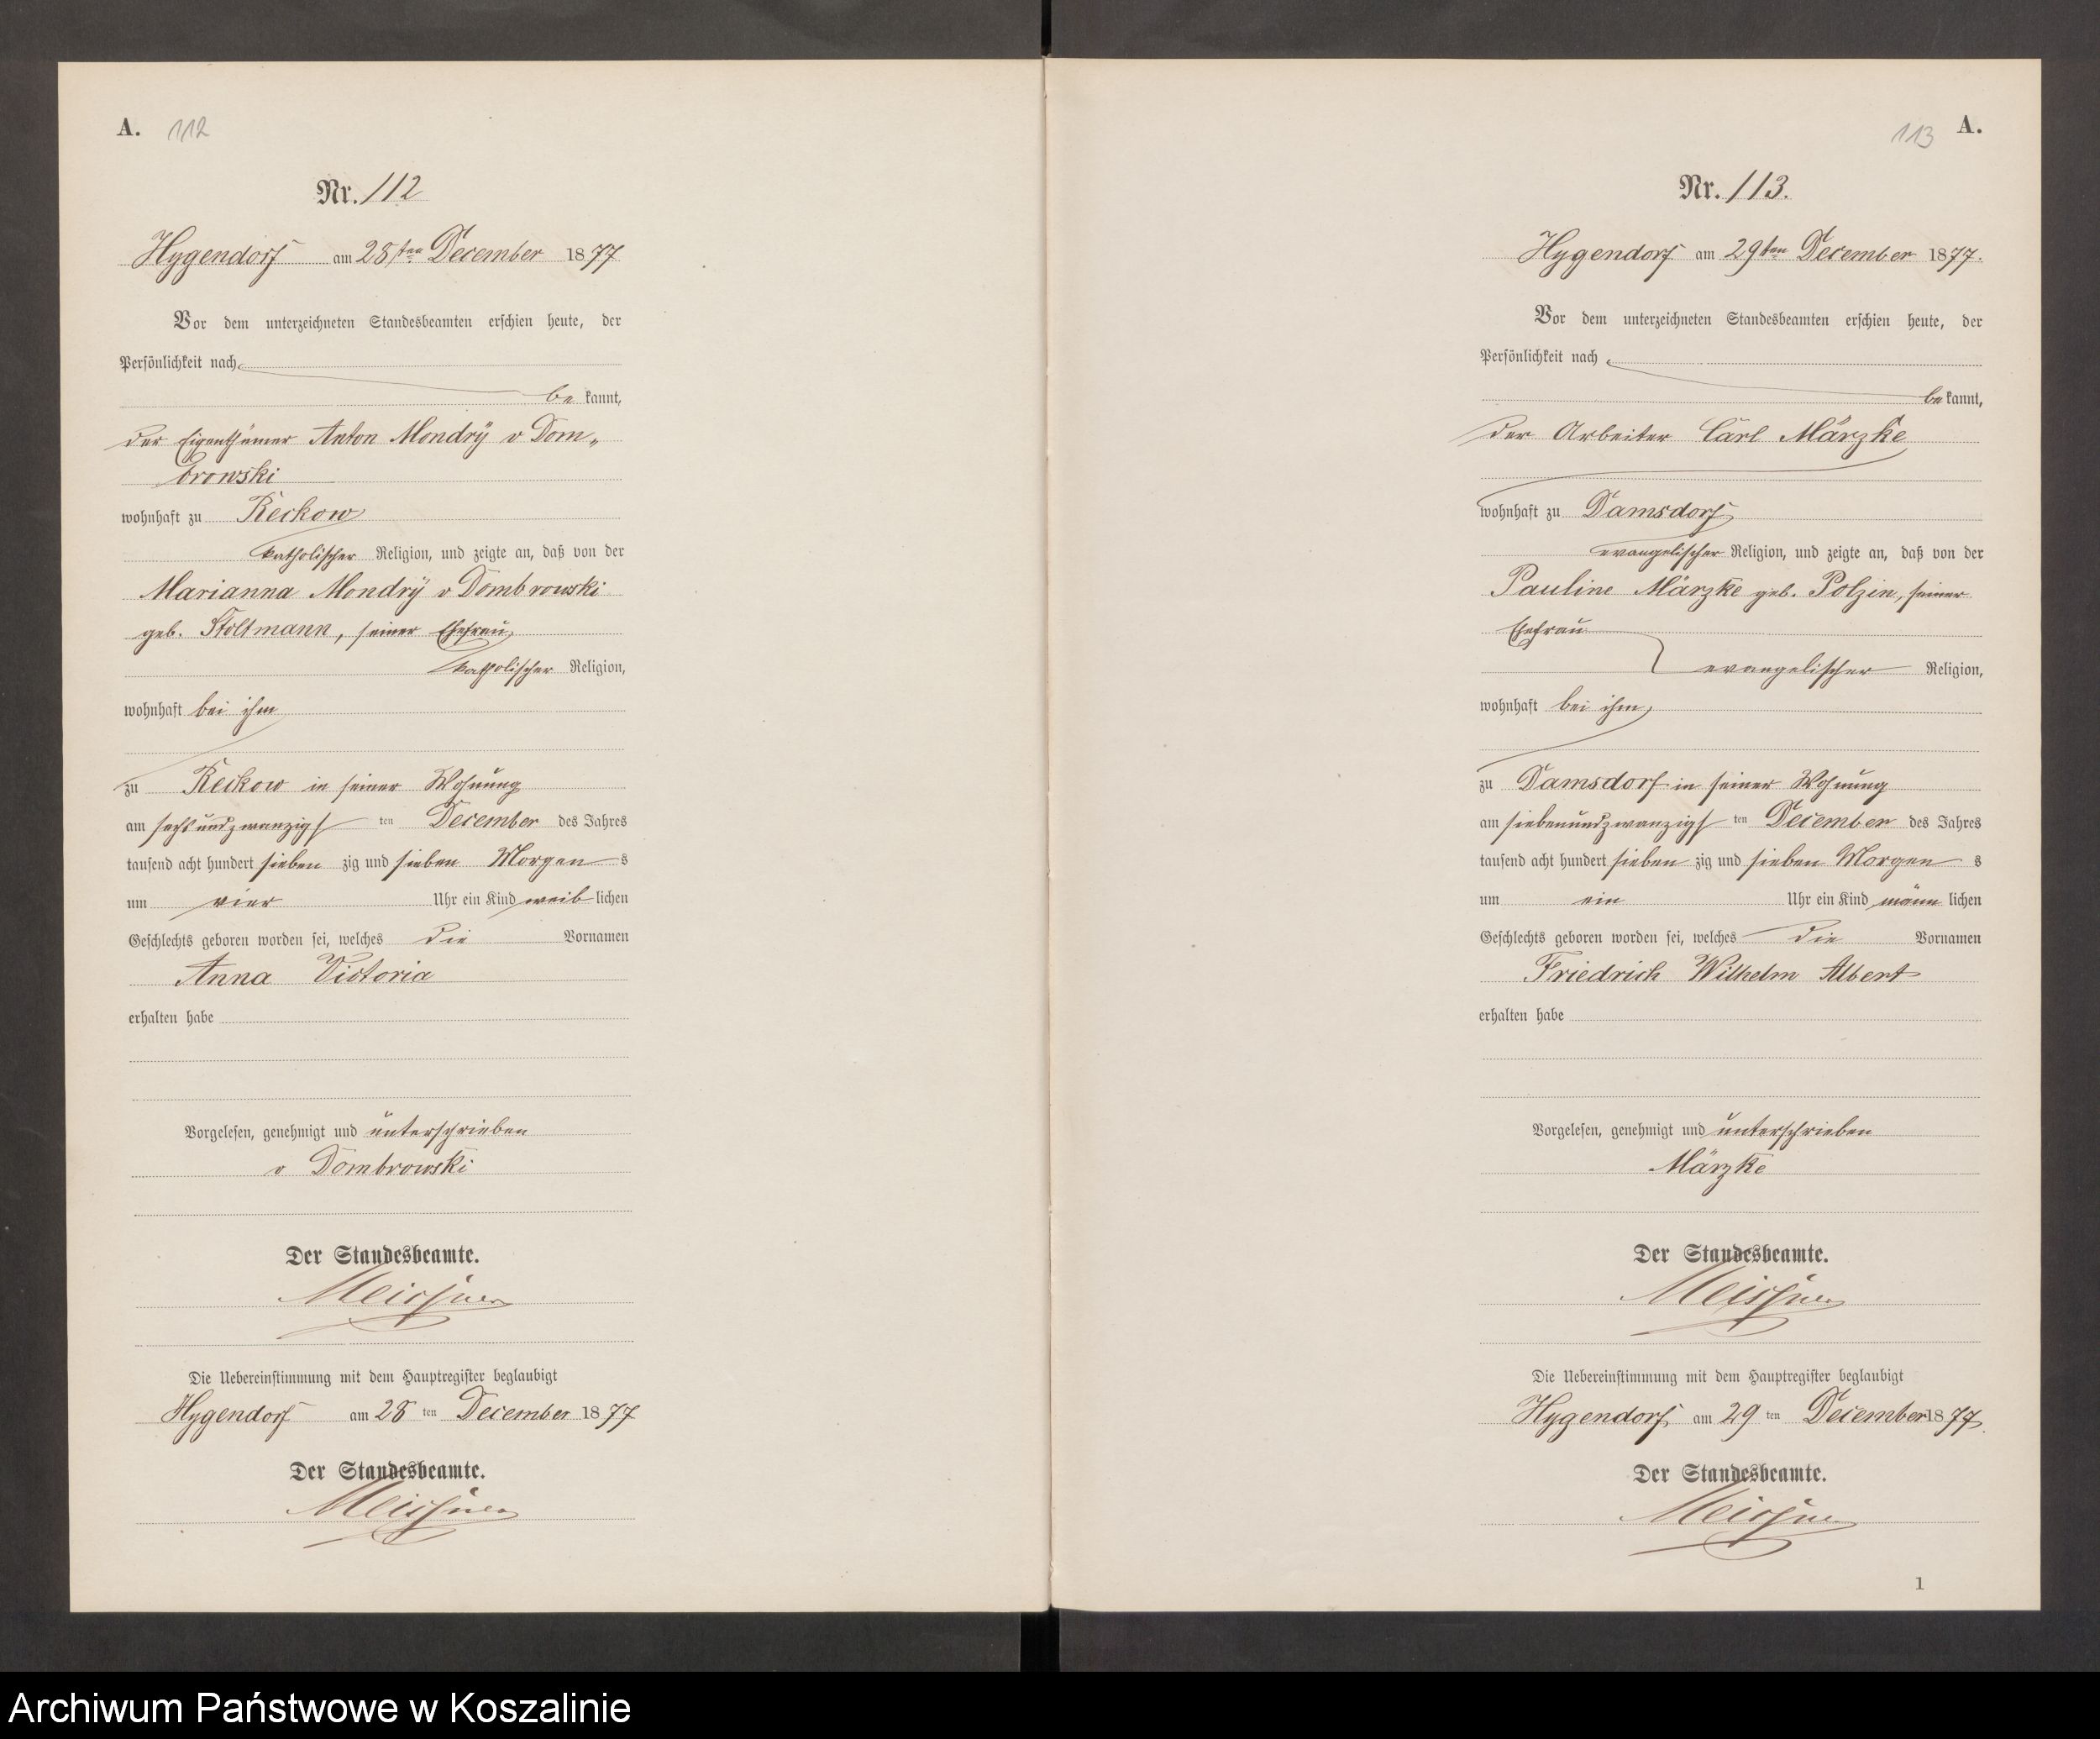 A. 112
Nr. 112
Hygendorf am 28ten December 1877
Vor dem unterzeichneten Standesbeamten erschien heute, der
Persönlichkeit nach
be kannt,
der Eigenthümer Anton Mondrÿ v Dom„
browski
wohnhaft zu Reckow
katholischer Religion, und zeigte an, daß von der
Marianna Mondrÿ v Dombrowski
geb. Stoltmann, seiner Ehefrau
katholischer Religion,
wohnhaft bei ihm
zu Reckow in seiner Wohnung
am sechsundzwanzigsten December des Jahres
tausend acht hundert sieben zig und sieben Morgens
um vier Uhr ein Kind weib lichen
Geschlechts geboren worden sei, welches die Vornamen
Anna Victoria
erhalten habe
Vorgelesen, genehmigt und unterschrieben
v Dombrowski
Der Standesbeamte.
Meissner
Die Uebereinstimmung mit dem Hauptregister beglaubigt
Hygendorf am 28 ten December 1877
Der Standesbeamte.
Meissner
113 A.
Nr. 113.
Hygendorf am 29ten December 1877.
Vor dem unterzeichneten Standesbeamten erschien heute, der
Persönlichkeit nach
be kannt,
der Arbeiter Carl Märzke
wohnhaft zu Damsdorf
evangelischer Religion, und zeigte an, daß von der
Pauline Märzke geb. Polzin, seiner
Ehefrau
evangelischer Religion,
wohnhaft bei ihm
zu Damsdorf in seiner Wohnung
am siebenundzwanzigsten December des Jahres
tausend acht hundert sieben zig und sieben Morgens
um ein Uhr ein Kind männ lichen
Geschlechts geboren worden sei, welches die Vornamen
Friedrich Wilhelm Albert
erhalten habe
Vorgelesen, genehmigt und unterschrieben
Märzke
Der Standesbeamte.
Meissner
Die Uebereinstimmung mit dem Hauptregister beglaubigt
Hygendorf am 29 ten December 1877.
Der Standesbeamte.
Meissner
1
Archiwum Państwowe w Koszalinie